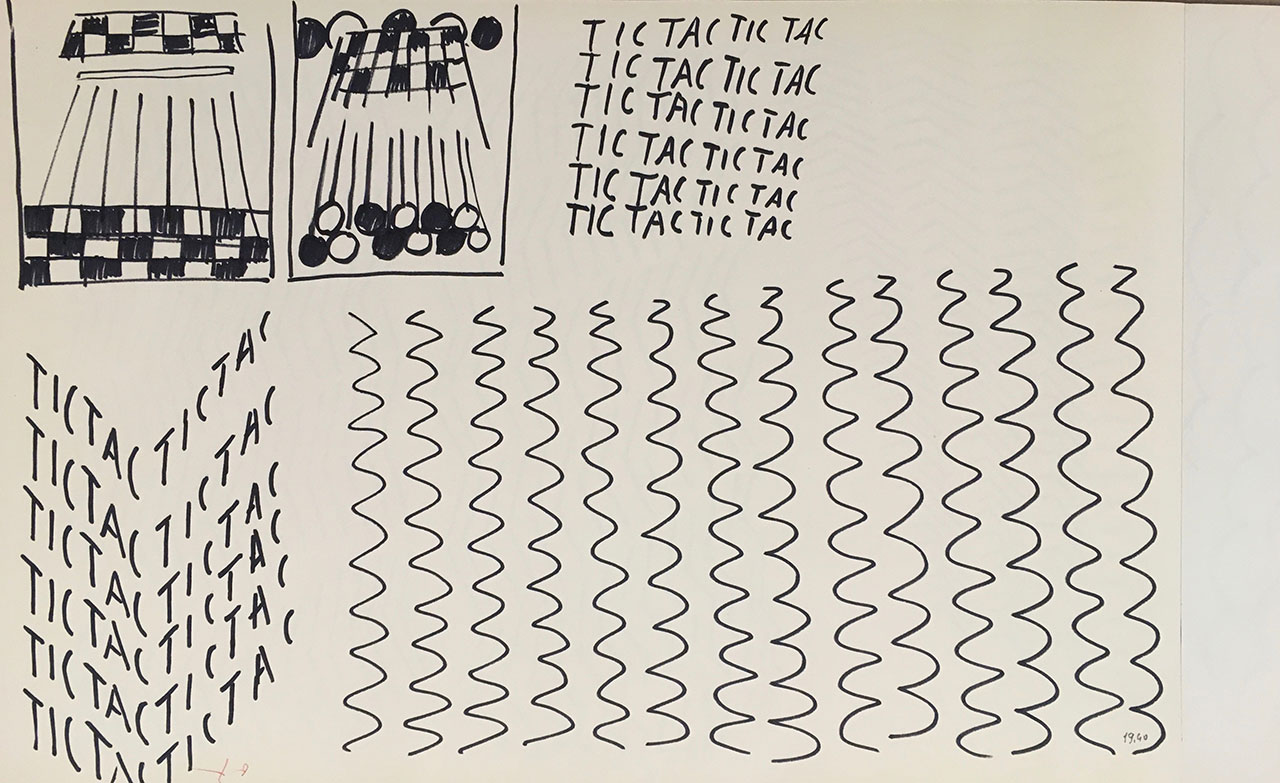 TIC TAC TIC TAC
TIC TAC TIC TAC
TIC TAC TIC TAC
TIC TAC TIC TAC
TIC TAC TIC TAC
TIC TAC TIC TAC
TIC TAC TIC TAC
TIC TAC TIC TAC
TIC TAC TIC TAC
TIC TAC TIC TAC
TIC TAC TIC TAC
TIC TAC TIC TAC
19,40